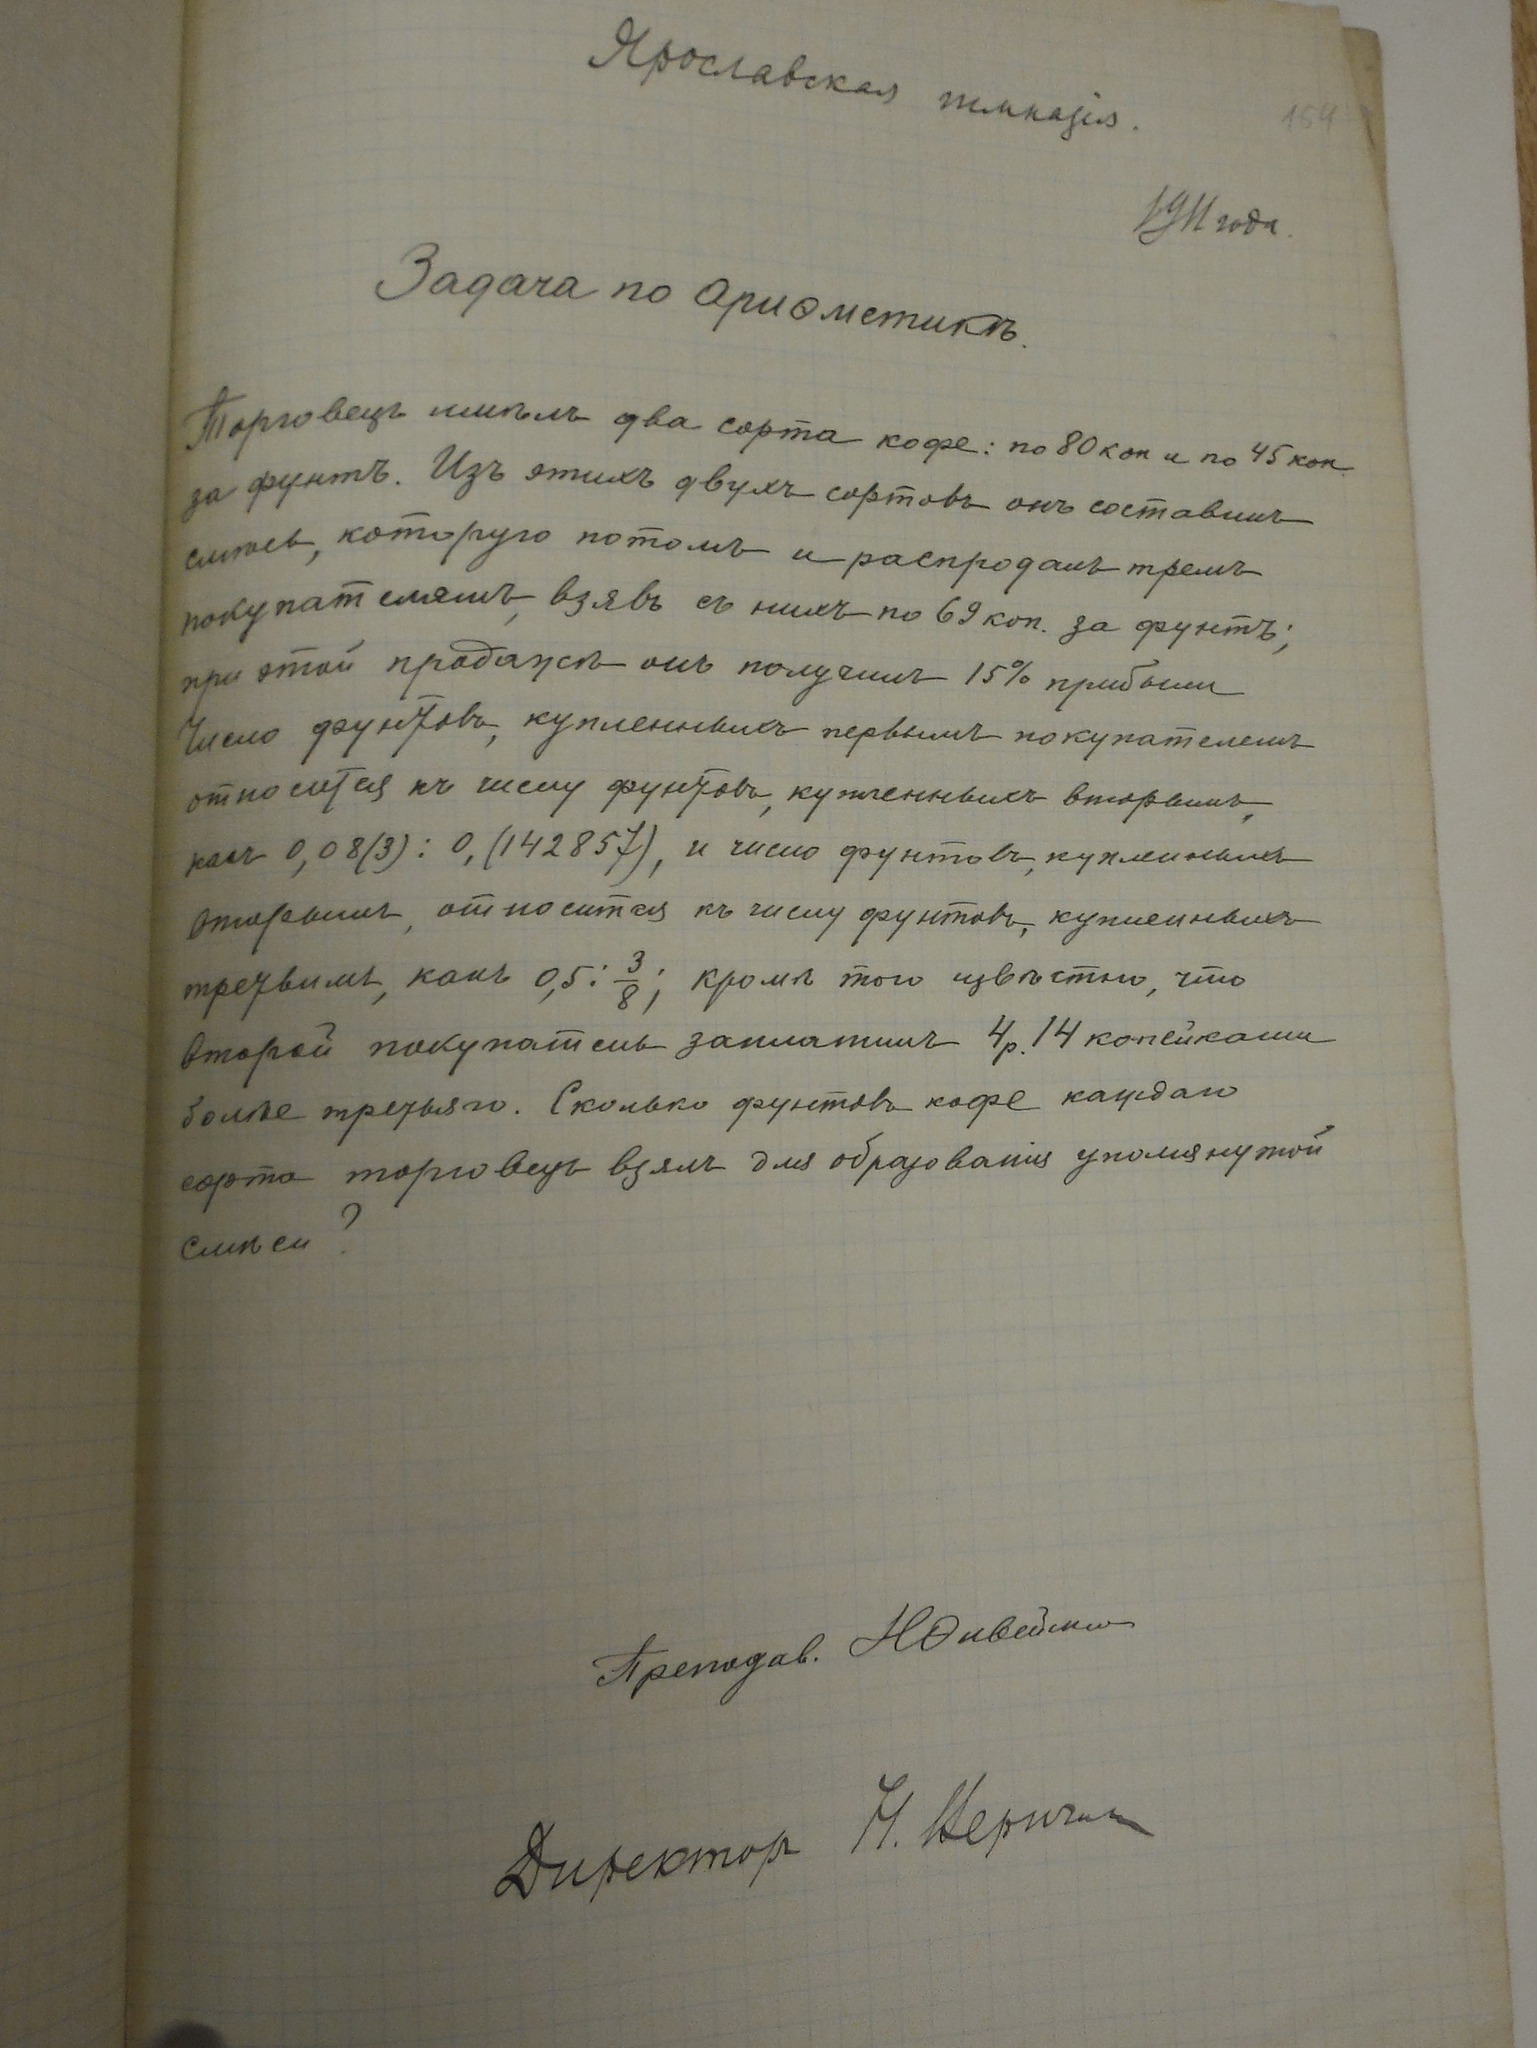 Ярославская гимназія.
154
1911 года.
Задача по ариѳметикѣ.
Торговецъ имѣлъ два сорта кофе: по 80 коп и по 45 коп
за фунтъ. Изъ этихъ двухъ сортовъ онъ составилъ
смѣсь, которую потомъ и распродалъ тремъ
покупателямъ, взявъ съ нихъ по 69 коп. за фунтъ;
при этой продажѣ онъ получилъ 15% прибыли
Число фунтовъ, купленныхъ первымъ покупателемъ
относится къ числу фунтовъ, купленныхъ вторымъ,
какъ 0,08(3) : 0,(142857), и число фунтовъ, купленныхъ
вторымъ, относится къ числу фунтовъ, купленныхъ
третьимъ, какъ 0,5 : 3/8; кромѣ того извѣстно, что
второй покупатель заплатилъ 4р. 14 копейками
болѣе третьяго. Сколько фунтовъ кофе каждаго
сорта торговецъ взялъ для образованія упомянутой
смѣси?
Преподав. Н
Директоръ Н.